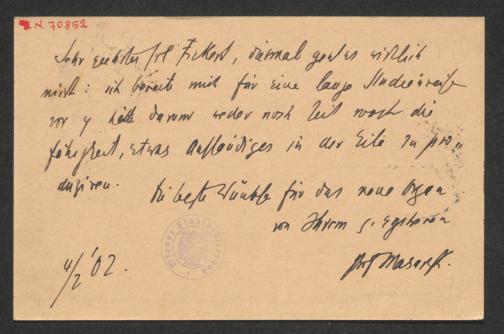 N. 70852
Sehr geehrtes Frl Fickert, diesmal geht es wirklich
nicht: ich bereite mich für eine lange Studienreise
vor u hätte darum weder noch Zeit noch die
Fähigkeit, etwas Anständiges in der Eile zu pro-
duziren.
Die besten Wünsche für das neue Organ
von Ihrem
4/2 '02.
Prof Masaryk.